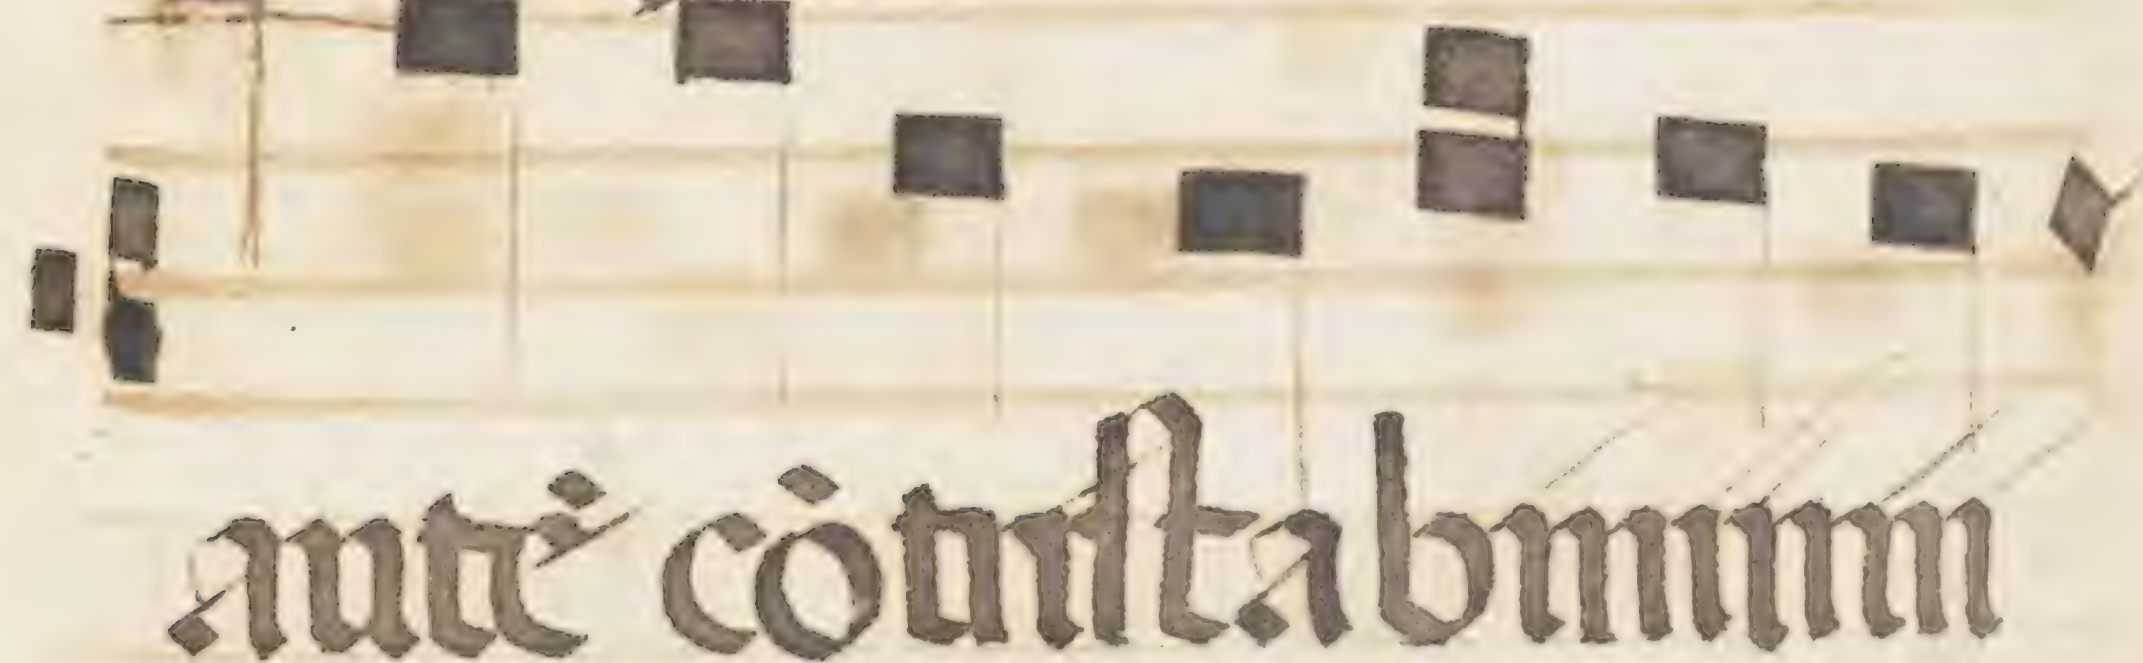 autē cōtristabimini